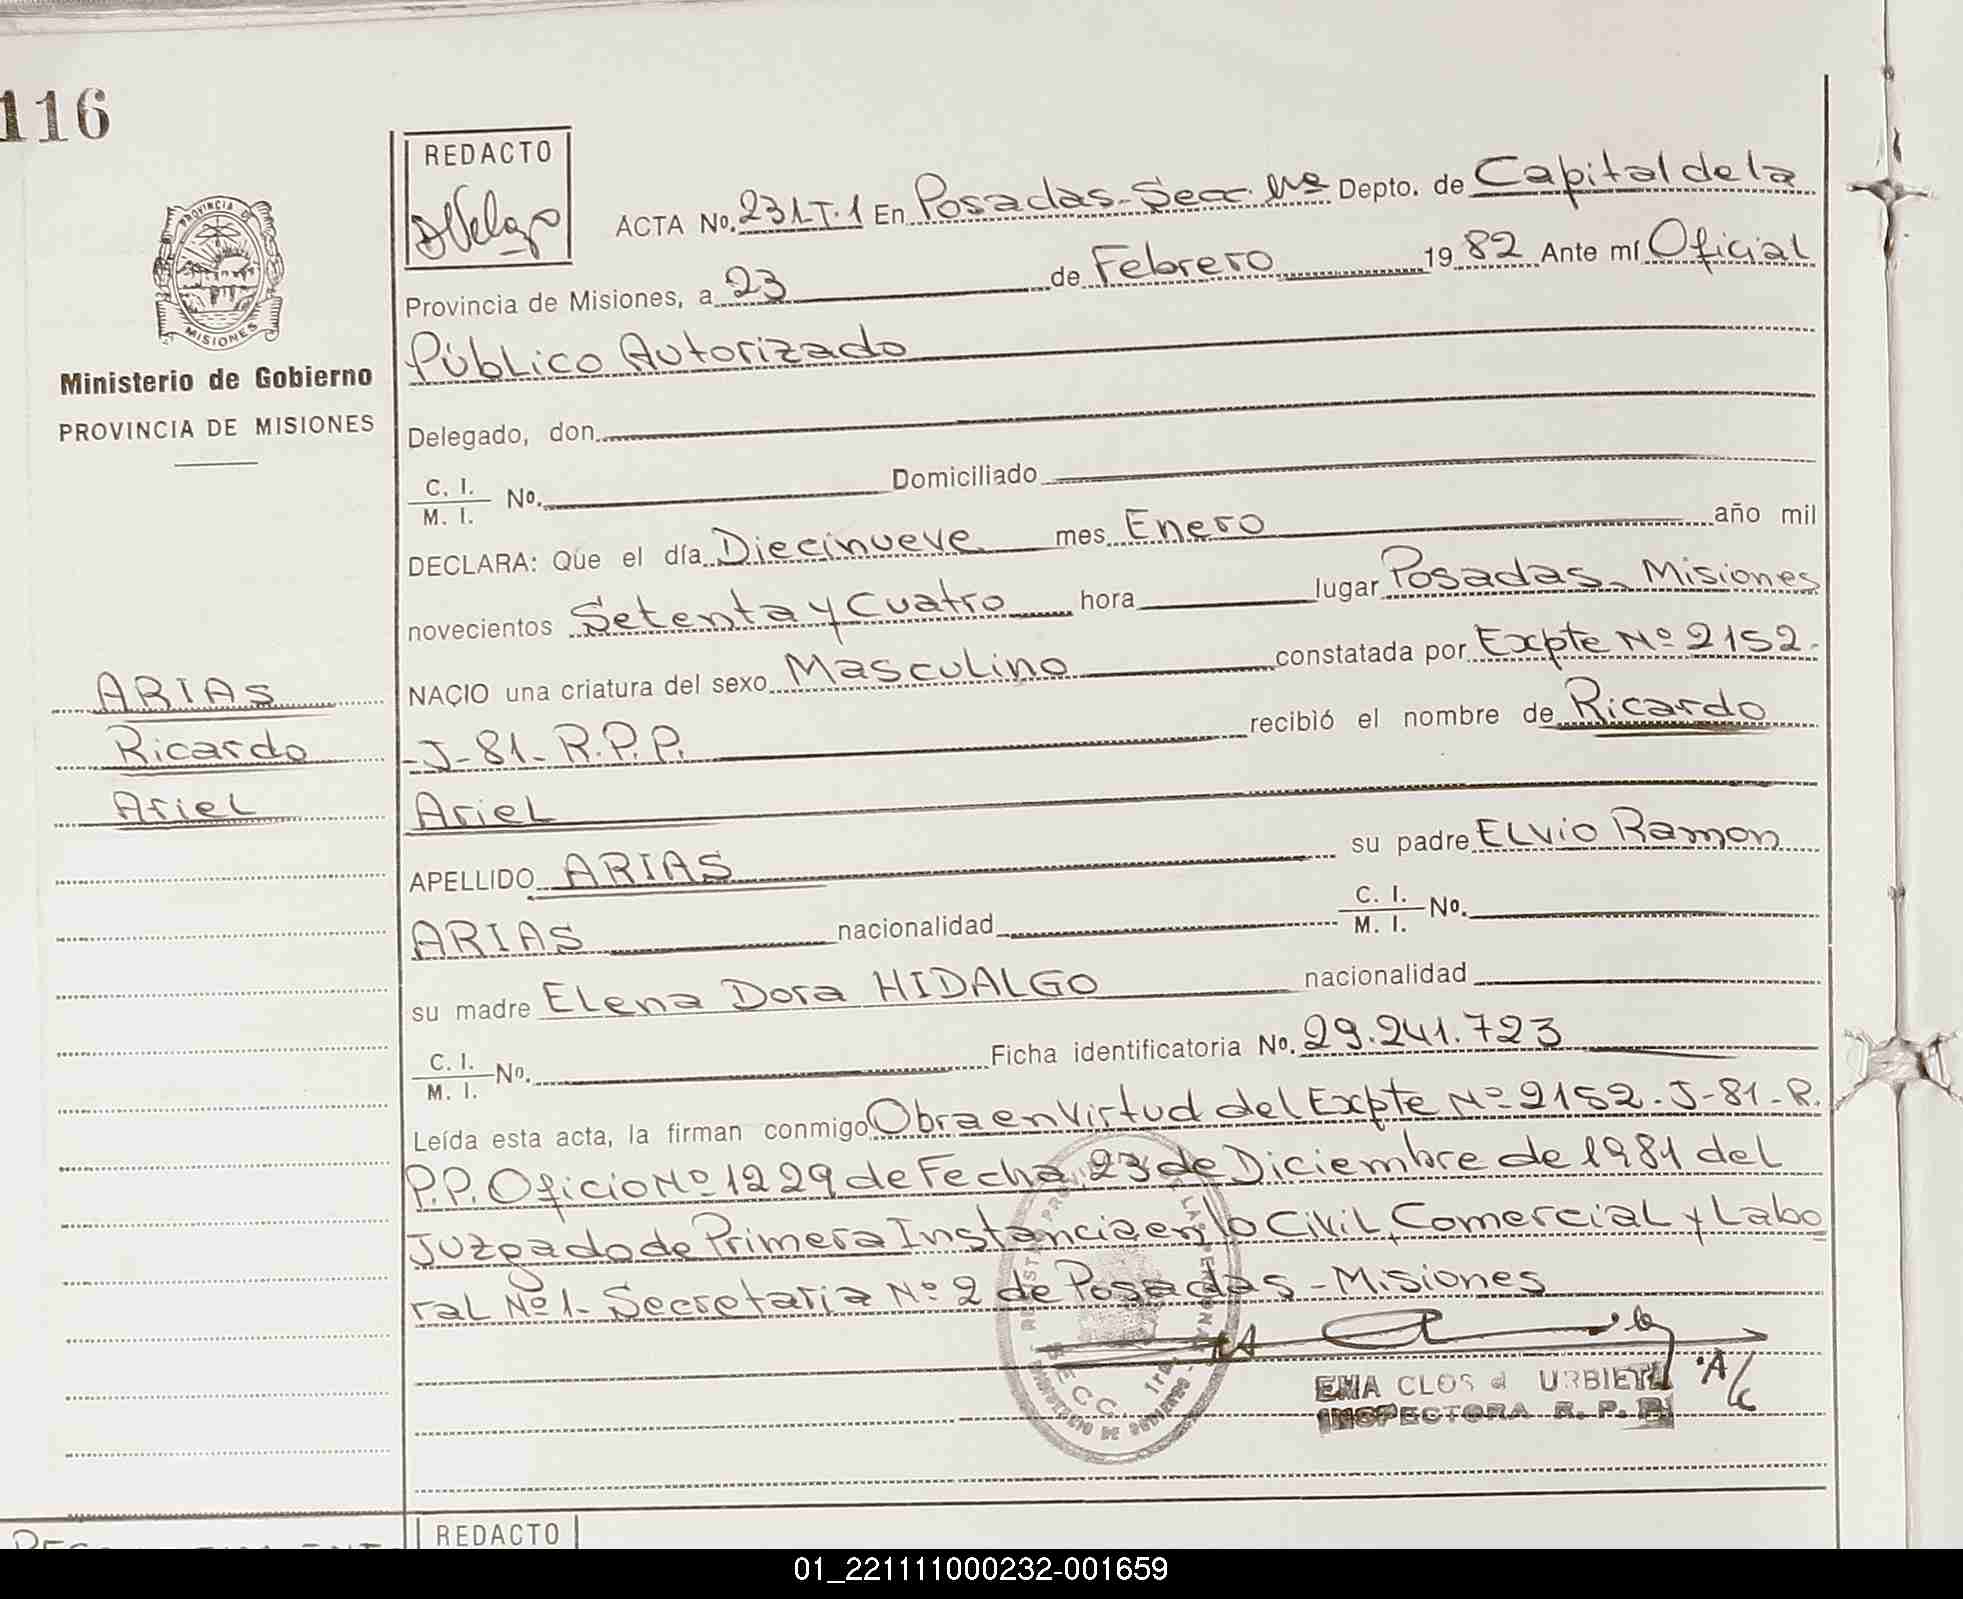 116
REDACTO
ACTA No. 231-T.1 En Posadas-Secc. Depto. de Capital de la
Provincia de Misiones, a 23 de Febrero 1982 Ante mí Oficial
Público Autorizado
PROVINCIA DE
MISIONES
Ministerio de Gobierno
PROVINCIA DE MISIONES
Delegado, don
C. I.
M. I. No. Domiciliado
DECLARA: Que el día Diecinueve mes Enero año mil
novecientos Setenta y Cuatro hora lugar Posadas - Misiones
NAÇIO una criatura del sexo Masculino constatada por Expte Nº 2152-
-J-81- R.P.P. recibió el nombre de Ricardo
Ariel
ARIAS
Ricardo
Ariel
APELLIDO ARIAS su padre ELvio Ramon
ARIAS nacionalidad C. I.
M. I. No.
su madre ELena Dora HIDALGO nacionalidad
C. I.
M. I. No. Ficha identificatoria No. 29.241.723
Leída esta acta, la firman conmigo Obra en Virtud del Expte Nº 2152-J-81-R.
P.P. Oficio Nº 1229 de Fecha 23 de Diciembre de 1981 del
Juzgado de Primera Instancia en lo Civil, Comercial y Labo
ral Nº 1- Secretaria Nº 2 de Posadas - Misiones
A/c
EMA CLOS d URBIETA
INSPECTORA R. P. P.
REDACTO
01_221111000232-001659